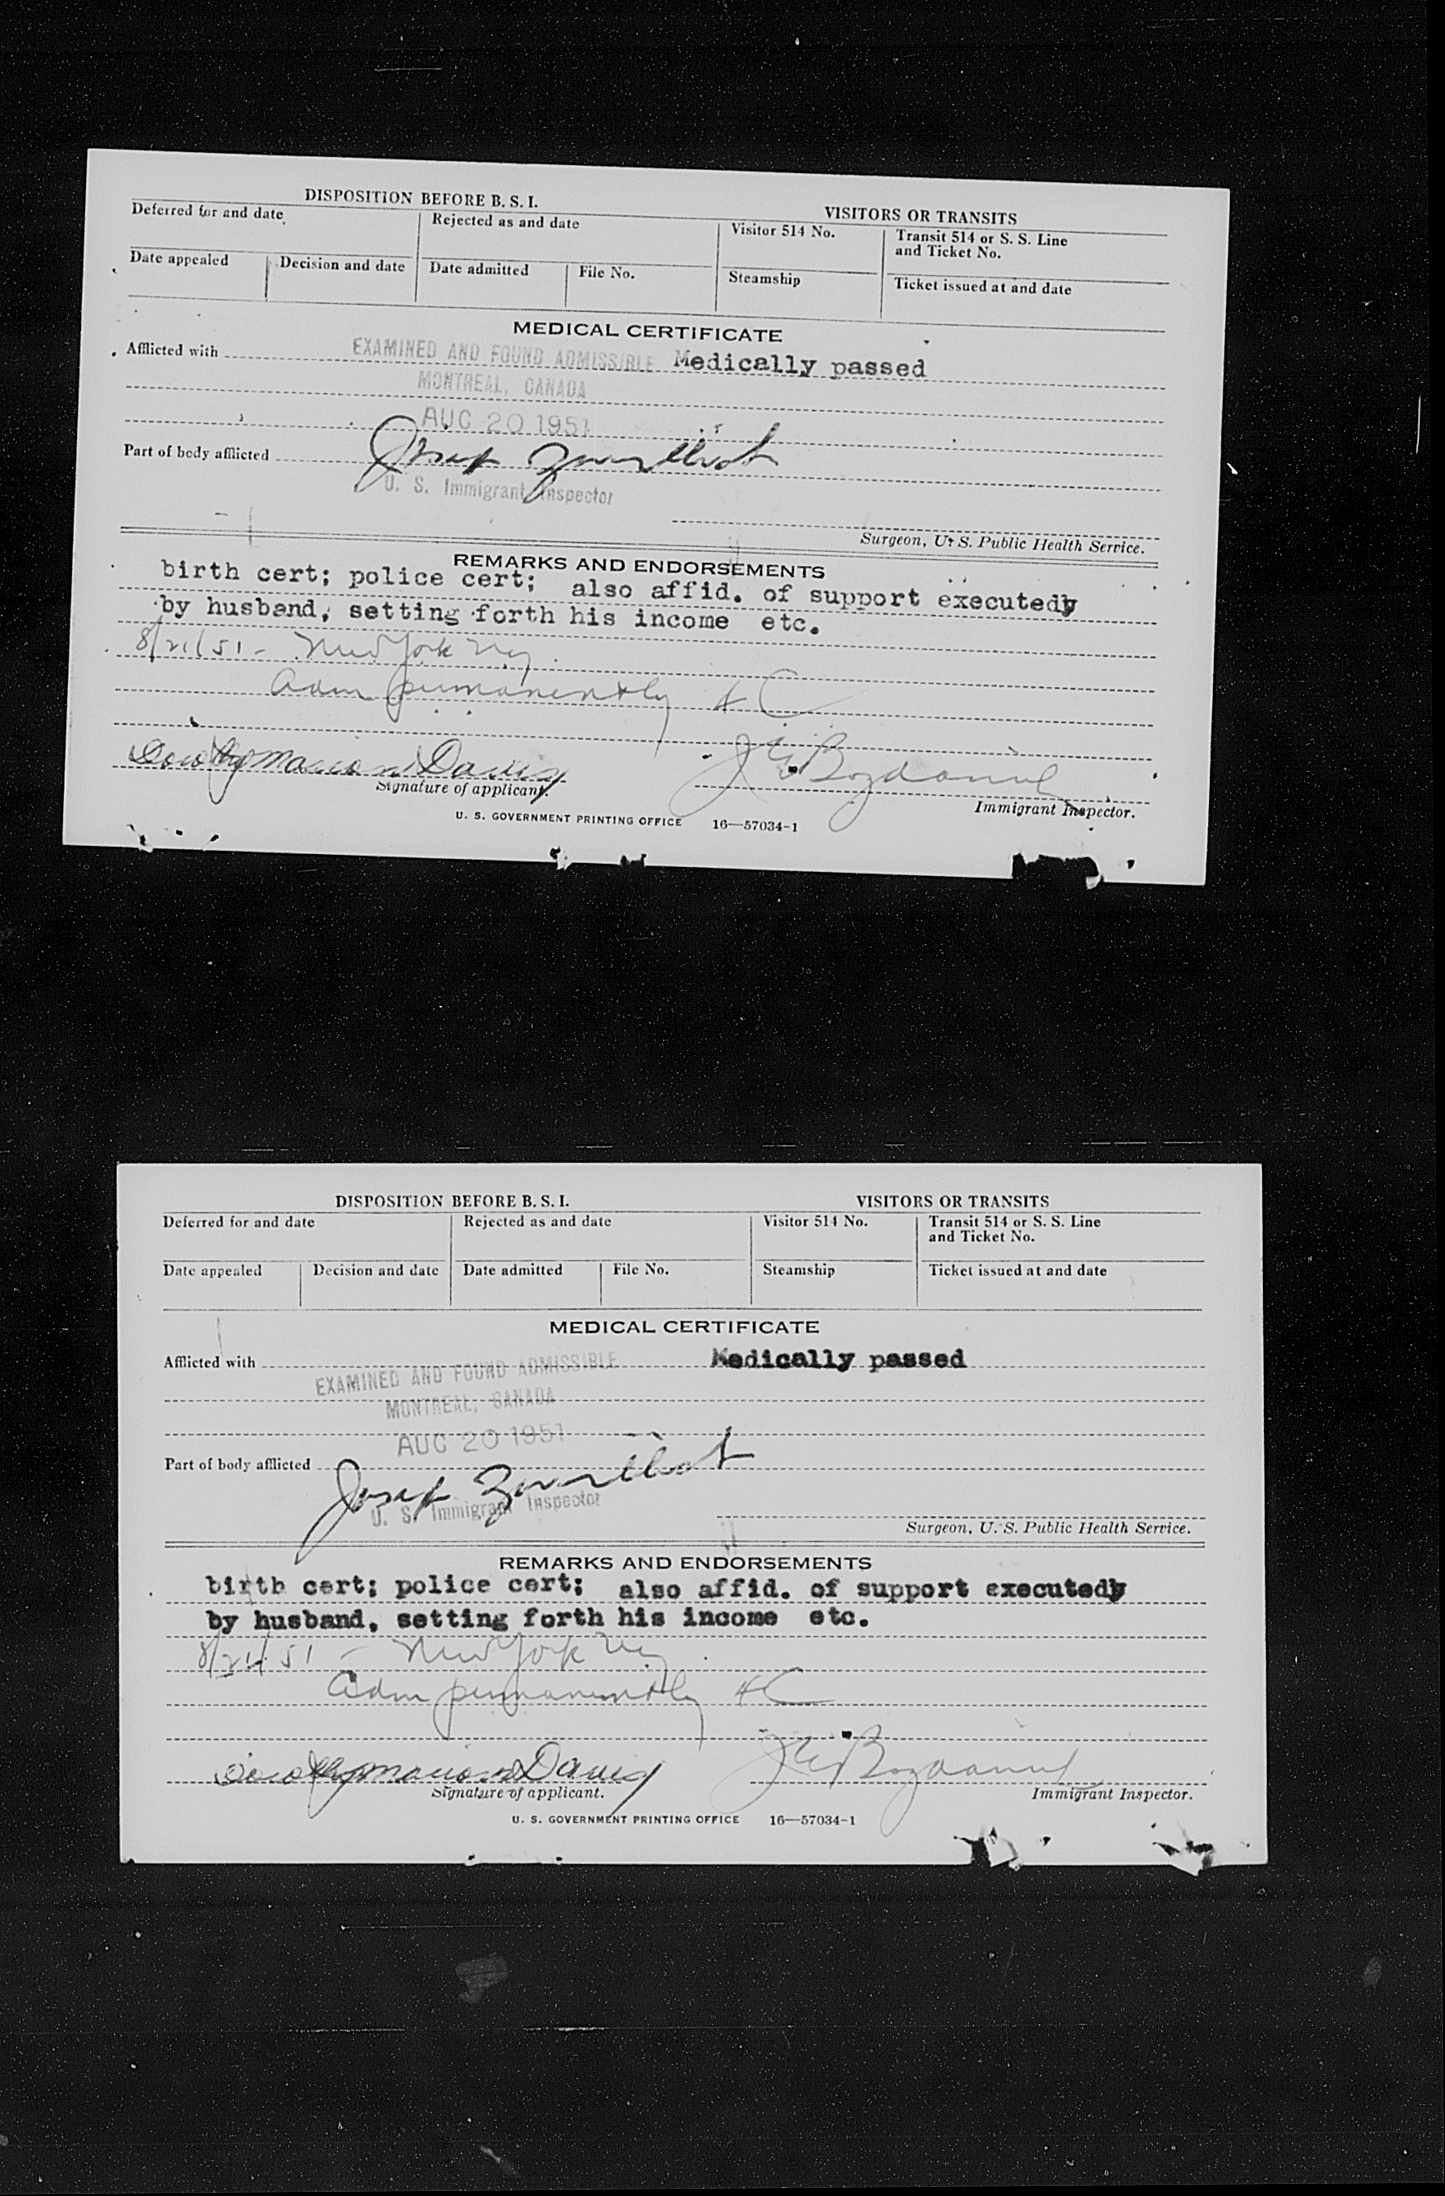 DISPOSITION BEFORE B. S. I.
VISITORS OR TRANSITS
Deferred for and date
Rejected as and date
Visitor 514 No.
Transit 514 or S. S. Line
and Ticket No.
Date appealed
Decision and date
Date admitted
File No.
Steamship
Ticket issued at and date
MEDICAL CERTIFICATE
Afflicted with
EXAMINED AND FOUND ADMISSIBLE
Medically passed
MONTREAL, CANADA
AUG 20 1951
Part of body afflicted
Josef
U. S. Immigrant Inspector
Surgeon, U. S. Public Health Service.
REMARKS AND ENDORSEMENTS
birth cert; police cert; also affid. of support executedy
by husband, setting forth his income etc.
8/21/51 - New York Ny
adm permanently 4 C
Dorothy Marion Davis
Signature of applicant.
Immigrant Inspector.
U. S. GOVERNMENT PRINTING OFFICE 16—57034-1
DISPOSITION BEFORE B. S. I.
VISITORS OR TRANSITS
Deferred for and date
Rejected as and date
Visitor 514 No.
Transit 514 or S. S. Line
and Ticket No.
Date appealed
Decision and date
Date admitted
File No.
Steamship
Ticket issued at and date
MEDICAL CERTIFICATE
Afflicted with
EXAMINED AND FOUND ADMISSIBLE
Medically passed
MONTREAL, CANADA
AUG 20 1951
Part of body afflicted
Josef
U. S. Immigrant Inspector
Surgeon, U. S. Public Health Service.
REMARKS AND ENDORSEMENTS
birth cert; police cert; also affid. of support executedy
by husband, setting forth his income etc.
8/21/51 - New York Ny
adm permanently 4C
Dorothy Marion Davis
Signature of applicant.
Immigrant Inspector.
U. S. GOVERNMENT PRINTING OFFICE 16—57034-1